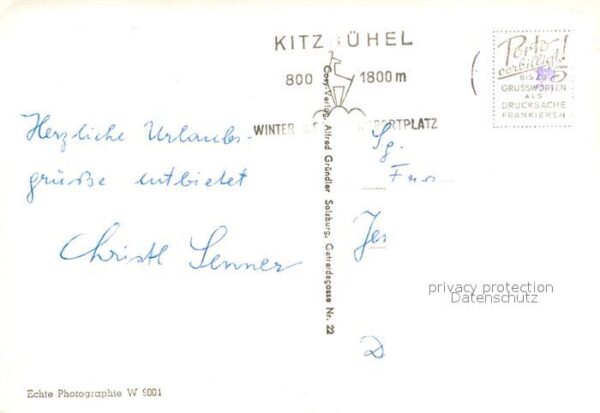 KITZBÜHEL
800 1800 m
WINTER SPORTPLATZ
Porto
verbilligt!
BIS ZU 5
GRUSSWORTEN
ALS
DRUCKSACHE
FRANKIEREN
Herzliche Urlaubs-
grüße entbietet
Christl Senner
Cosy-Verlag, Alfred Gründler Salzburg, Getreidegasse Nr. 22
Sg.
Jes
D
privacy protection
Datenschutz
Echte Photographie W 9001